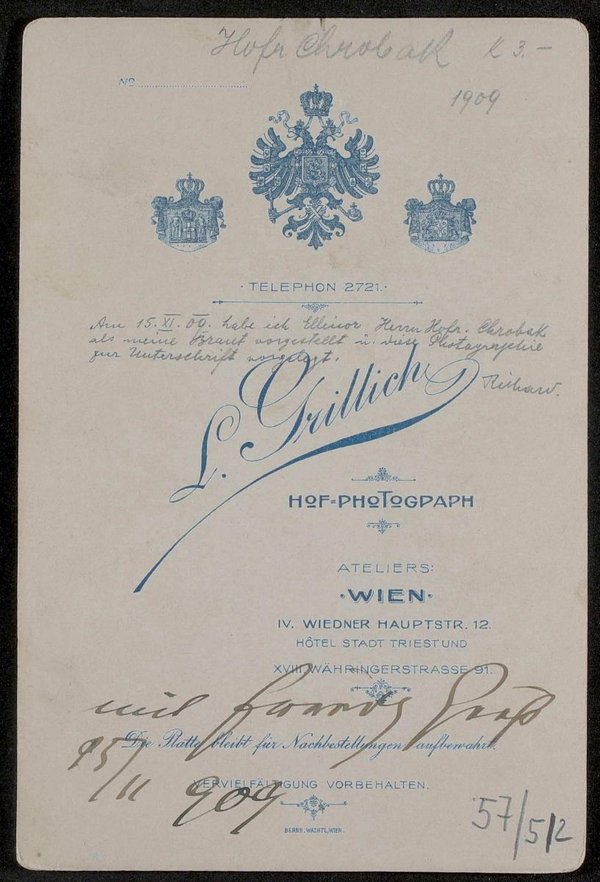 Hofr Chrobak K 3.–
No
1909
· TELEPHON 2721. ·
Am 15. XI. 09. habe ich Ellinor, Herrn Hofr. Chrobak
als meine Braut vorgestellt u. diese Photographie
zur Unterschrift vorgelegt.
Richard.
L. Grillich
HOF=PHOTOGRAPH
ATELIERS:
· WIEN ·
IV. WIEDNER HAUPTSTR. 12.
HÔTEL STADT TRIEST UND
XVIII. WÄHRINGERSTRASSE 91.
mit Gruß
Die Platte bleibt für Nachbestellungen aufbewahrt.
15/11 909
VERVIELFÄLTIGUNG VORBEHALTEN.
57/512
BERNH. WACHTL, WIEN.